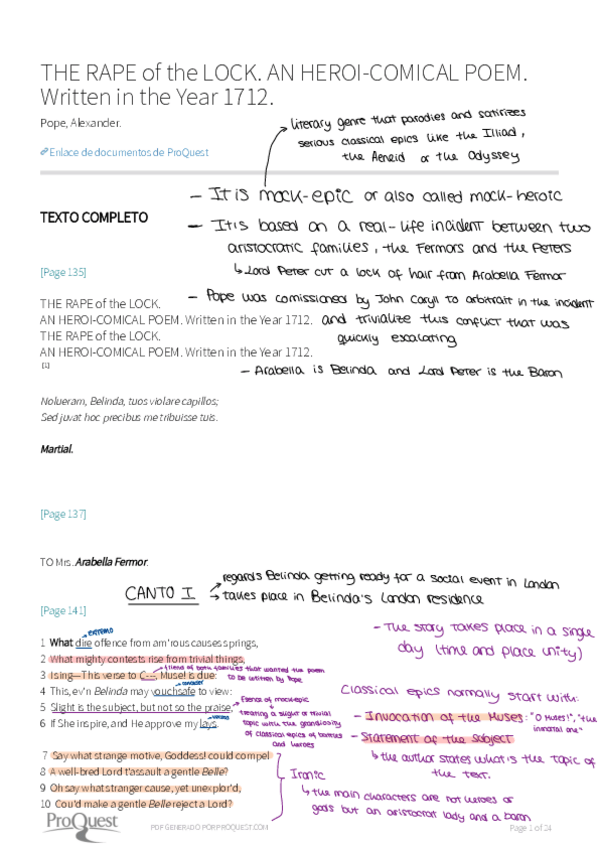 THE RAPE of the LOCK. AN HEROI-COMICAL POEM.
Written in the Year 1712.
Pope, Alexander.
Enlace de documentos de ProQuest
literary genre that parodies and satirizes
serious classical epics like the Illiad,
the Aeneid or the Odyssey
- It is mock-epic or also called mock-heroic
TEXTO COMPLETO
- It is based on a real-life incident between two
aristocratic families, the Fermors and the Peters
↳ Lord Peter cut a lock of hair from Arabella Fermor
[Page 135]
- Pope was comissioned by John Caryll to arbitrait in the incident
and trivialize this conflict that was
quickly escalating
THE RAPE of the LOCK.
AN HEROI-COMICAL POEM. Written in the Year 1712.
THE RAPE of the LOCK.
AN HEROI-COMICAL POEM. Written in the Year 1712.
[1]
- Arabella is Belinda and Lord Peter is the Baron
Nolueram, Belinda, tuos violare capillos;
Sed juvat hoc precibus me tribuisse tuis.
Martial.
[Page 137]
TO Mrs. Arabella Fermor.
CANTO I
→ regards Belinda getting ready for a social event in London
→ takes place in Belinda's London residence
[Page 141]
- The story takes place in a single
day (time and place unity)
extremo
1 What dire offence from am'rous causes springs,
2 What mighty contests rise from trivial things,
friend of both families that wanted the poem
to be written by Pope
3 I sing—This verse to C---, Muse! is due:
4 This, ev'n Belinda may vouchsafe to view:
5 Slight is the subject, but not so the praise,
6 If She inspire, and He approve my lays.
Essence of mock-epic
treating a slight or trivial
topic with the grandiosity
of classical epics of battles
and heroes
Classical epics normally start with:
- Invocation of the Muses: "O Muses!", "the
immortal one"
- Statement of the Subject
↳ the author states what is the topic of
the text.
7 Say what strange motive, Goddess! could compel
8 A well-bred Lord t'assault a gentle Belle?
9 Oh say what stranger cause, yet unexplor'd,
10 Cou'd make a gentle Belle reject a Lord?
Ironic
↳ the main characters are not heroes or
gods but an aristocrat lady and a baron
ProQuest
PDF GENERADO POR PROQUEST.COM
Page 1 of 24